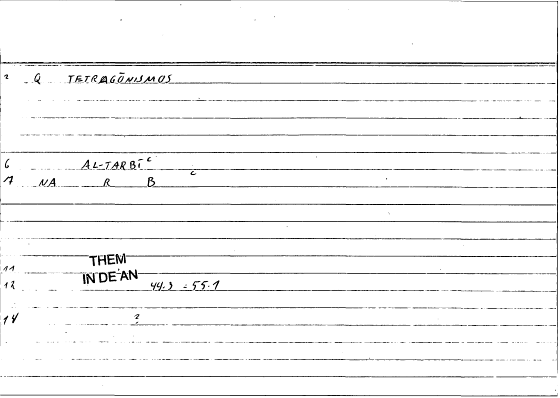 2 Q TETRAGŌNISMOS
6 AL-TARBĪʿ
7 NA R B ʿ
11 THEM
IN DE AN
12 44.9 = 55.1
14 ?